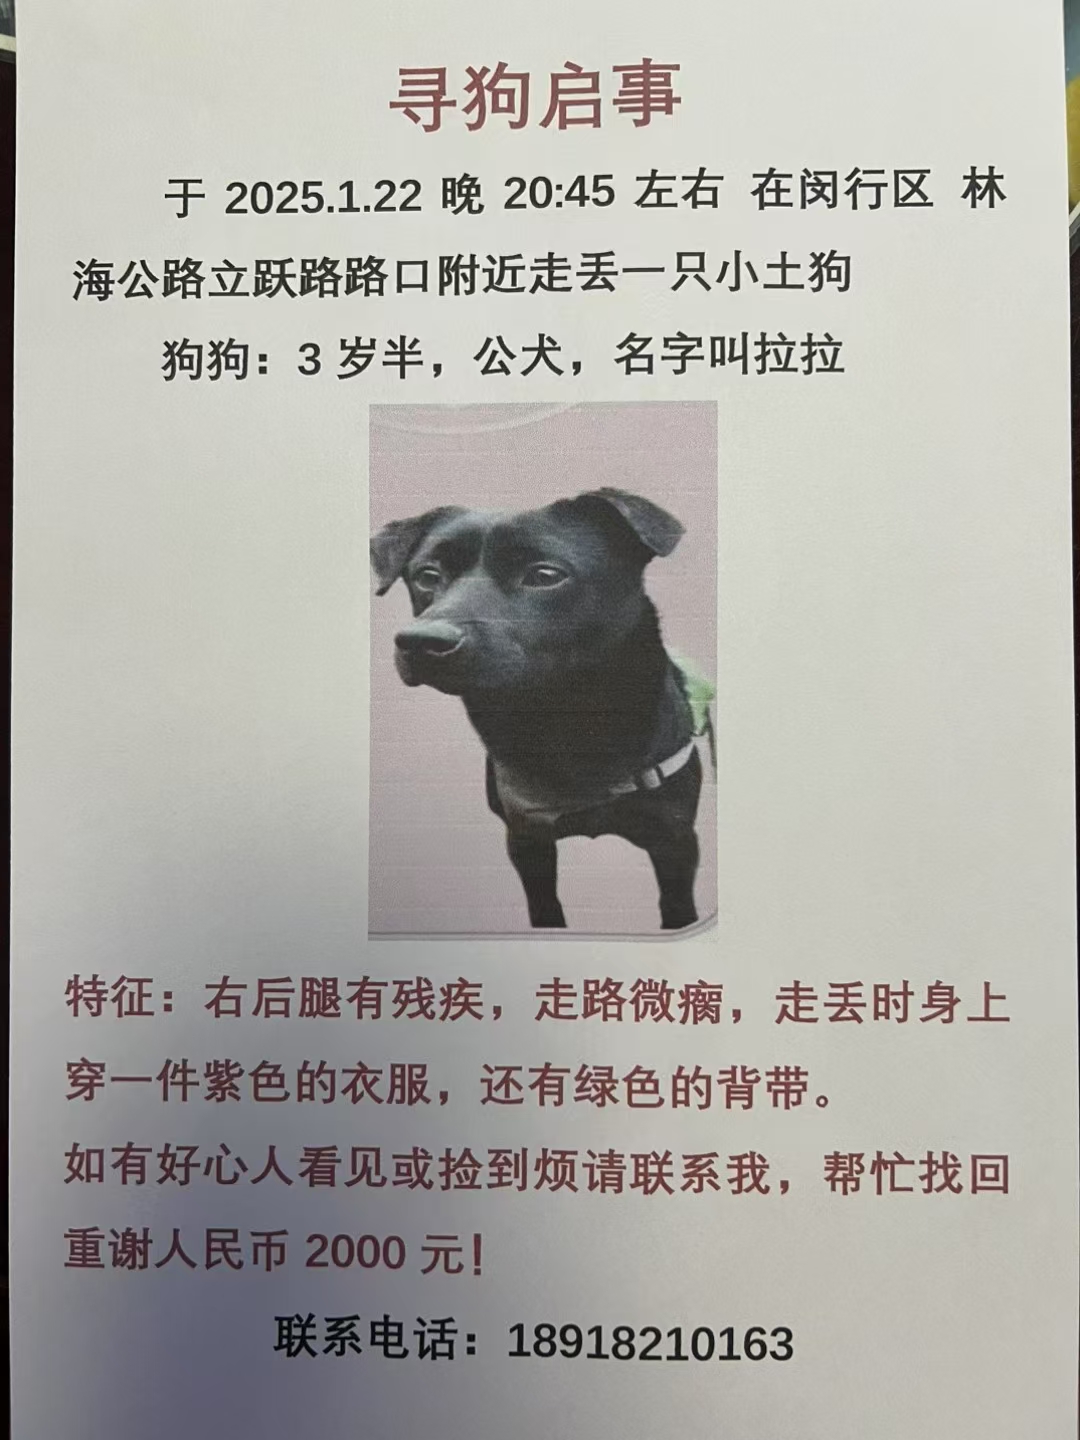 寻狗启事
于 2025.1.22 晚 20:45 左右 在闵行区 林
海公路立跃路路口附近走丢一只小土狗
狗狗：3 岁半，公犬，名字叫拉拉
特征：右后腿有残疾，走路微瘸，走丢时身上
穿一件紫色的衣服，还有绿色的背带。
如有好心人看见或捡到烦请联系我，帮忙找回
重谢人民币 2000 元！
联系电话：18918210163